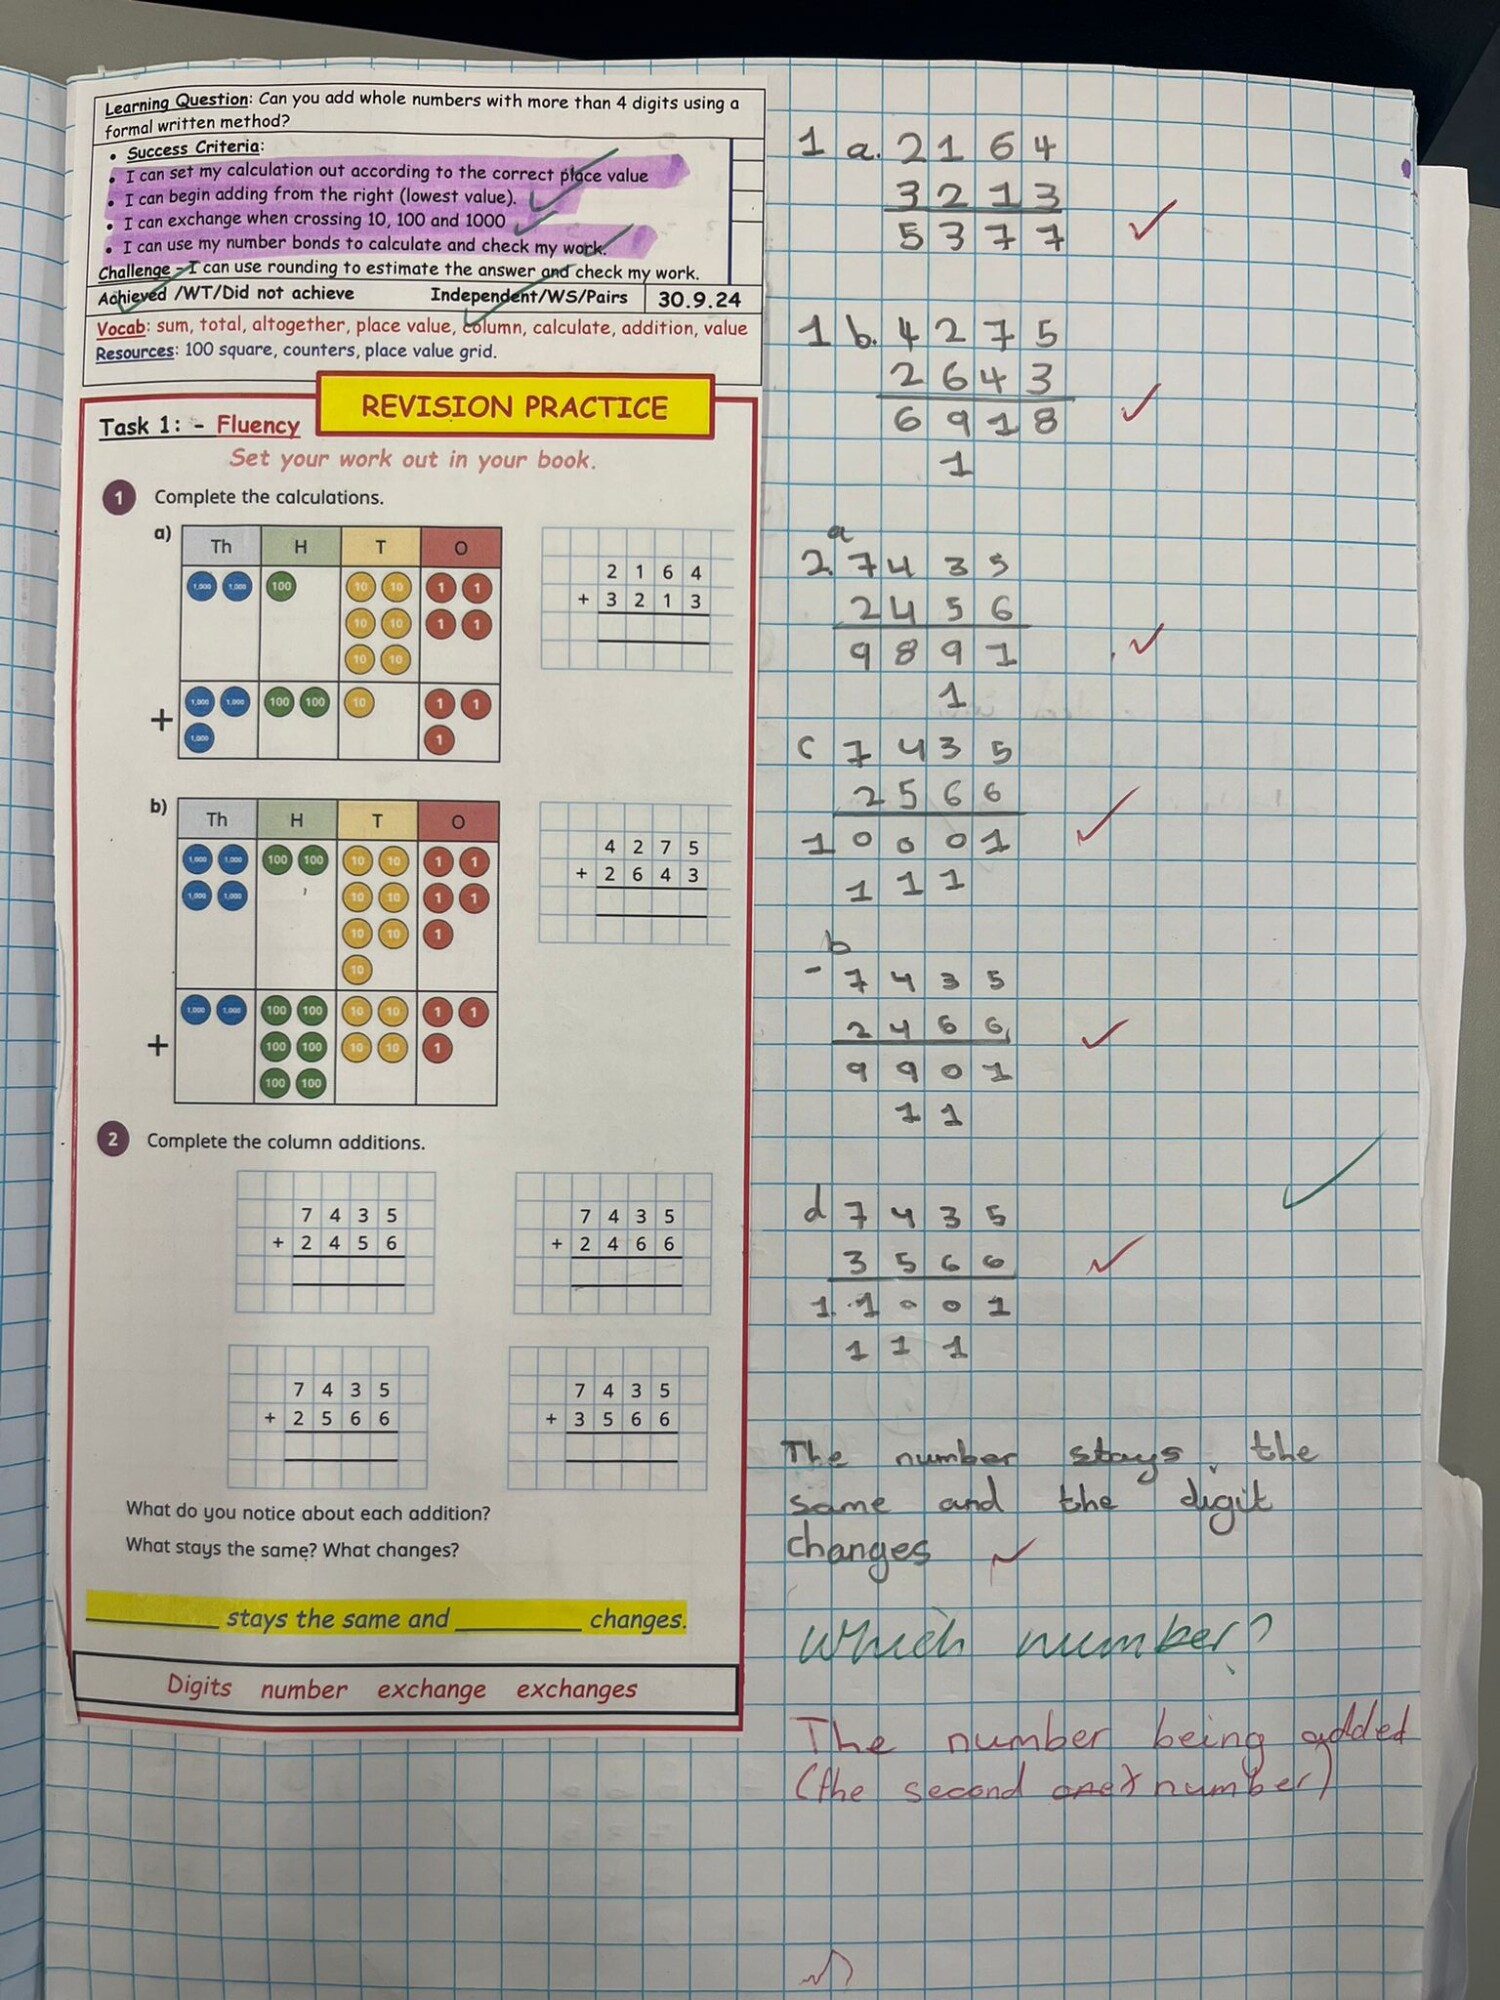 Learning Question: Can you add whole numbers with more than 4 digits using a
formal written method?
• Success Criteria:
• I can set my calculation out according to the correct place value
• I can begin adding from the right (lowest value).
• I can exchange when crossing 10, 100 and 1000
• I can use my number bonds to calculate and check my work.
Challenge – I can use rounding to estimate the answer and check my work.
Achieved /WT/Did not achieve Independent/WS/Pairs 30.9.24
Vocab: sum, total, altogether, place value, column, calculate, addition, value
Resources: 100 square, counters, place value grid.
REVISION PRACTICE
Task 1: - Fluency
Set your work out in your book.
1 Complete the calculations.
a)
Th H T O
1,000 1,000 100 10 10 1 1
10 10 1 1
10 10
+
1,000 1,000 100 100 10 1 1
1,000 1
2 1 6 4
+ 3 2 1 3
b)
Th H T O
1,000 1,000 100 100 10 10 1 1
1,000 1,000 10 10 1 1
10 10 1
10
+
1,000 1,000 100 100 10 10 1 1
100 100 10 10 1
100 100
4 2 7 5
+ 2 6 4 3
2 Complete the column additions.
7 4 3 5
+ 2 4 5 6
7 4 3 5
+ 2 4 6 6
7 4 3 5
+ 2 5 6 6
7 4 3 5
+ 3 5 6 6
What do you notice about each addition?
What stays the same? What changes?
__________ stays the same and __________ changes.
Digits number exchange exchanges
1 a. 2 1 6 4
3 2 1 3
5 3 7 7
1 b. 4 2 7 5
2 6 4 3
6 9 1 8
1
a
2. 7 4 3 5
2 4 5 6
9 8 9 1
1
c 7 4 3 5
2 5 6 6
1 0 0 0 1
1 1 1
b
- 7 4 3 5
2 4 6 6
9 9 0 1
1 1
d 7 4 3 5
3 5 6 6
1 1 0 0 1
1 1 1
The number stays the
same and the digit
changes
Which number?
The number being added
(the second number)